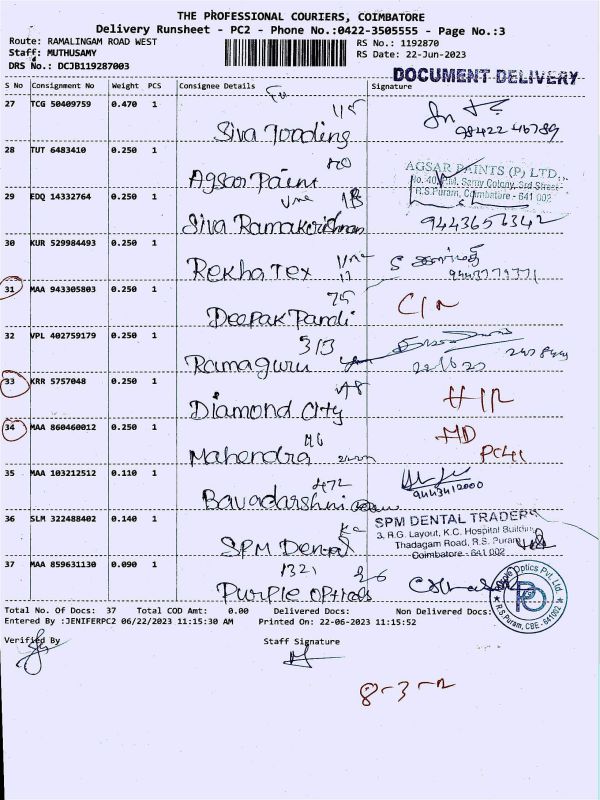 THE PROFESSIONAL COURIERS, COIMBATORE
Delivery Runsheet - PC2 - Phone No.:0422-3505555 - Page No.:3
Route: RAMALINGAM ROAD WEST RS No.: 1192870
Staff: MUTHUSAMY RS Date: 22-Jun-2023
DRS No.: DCJB119287003
DOCUMENT DELIVERY
S No Consignment No Weight PCS Consignee Details Signature
27 TCG 50409759 0.470 1
Siva Tooding 98422 46789
28 TUT 6483410 0.250 1
Agsar Paint
AGSAR PAINTS (P) LTD.,
R.S.Puram, Coimbatore - 641 002
29 EDQ 14332764 0.250 1
Siva Ramakrishnan 9443656342
30 KUR 529984493 0.250 1
Rekha Tex
31 MAA 943305803 0.250 1
75
Deepak Pandi
32 VPL 402759179 0.250 1
313
Ramaguru
33 KRR 5757048 0.250 1
Diamond City
34 MAA 860460012 0.250 1
Mahendra
35 MAA 103212512 0.110 1
472
Bavadarshni 9443412000
36 SLM 322488402 0.140 1
SPM Dental
SPM DENTAL TRADERS
3, R.G. Layout, K.C. Hospital Building
Thadagam Road, R.S. Puram
Coimbatore - 641 002
37 MAA 859631130 0.090 1
1321
Purple opticals
Purple Optics Pvt. Ltd.
R.S Puram, CBE - 641002
Total No. Of Docs: 37 Total COD Amt: 0.00 Delivered Docs: Non Delivered Docs:
Entered By :JENIFERPC2 06/22/2023 11:15:30 AM Printed On: 22-06-2023 11:15:52
Verified By Staff Signature